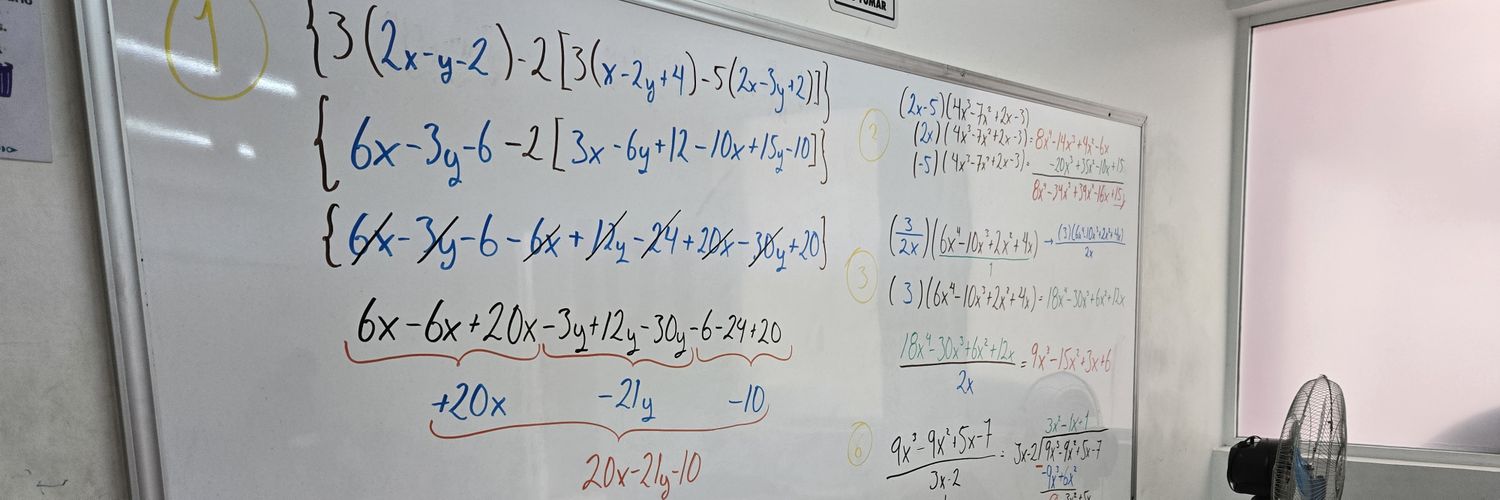 TOMAR
1
{3(2x-y-2)-2[3(x-2y+4)-5(2x-3y+2)]}
{6x-3y-6-2[3x-6y+12-10x+15y-10]}
{6x-3y-6-6x+12y-24+20x-30y+20}
6x-6x+20x-3y+12y-30y-6-24+20
+20x -21y -10
20x-21y-10
2
(2x-5)(4x³-7x²+2x-3)
(2x)(4x³-7x²+2x-3)=8x⁴-14x³+4x²-6x
(-5)(4x³-7x²+2x-3)= -20x³+35x²-10x+15
8x⁴-34x³+39x²-16x+15
3
(3/2x)(6x⁴-10x³+2x²+4x)/1 → (3)(6x⁴-10x³+2x²+4x)/2x
(3)(6x⁴-10x³+2x²+4x)=18x⁴-30x³+6x²+12x
18x⁴-30x³+6x²+12x/2x = 9x³-15x²+3x+6
6
3x²-1x+1
9x³-9x²+5x-7/3x-2 = 3x-2√9x³-9x²+5x-7
-9x³+6x²